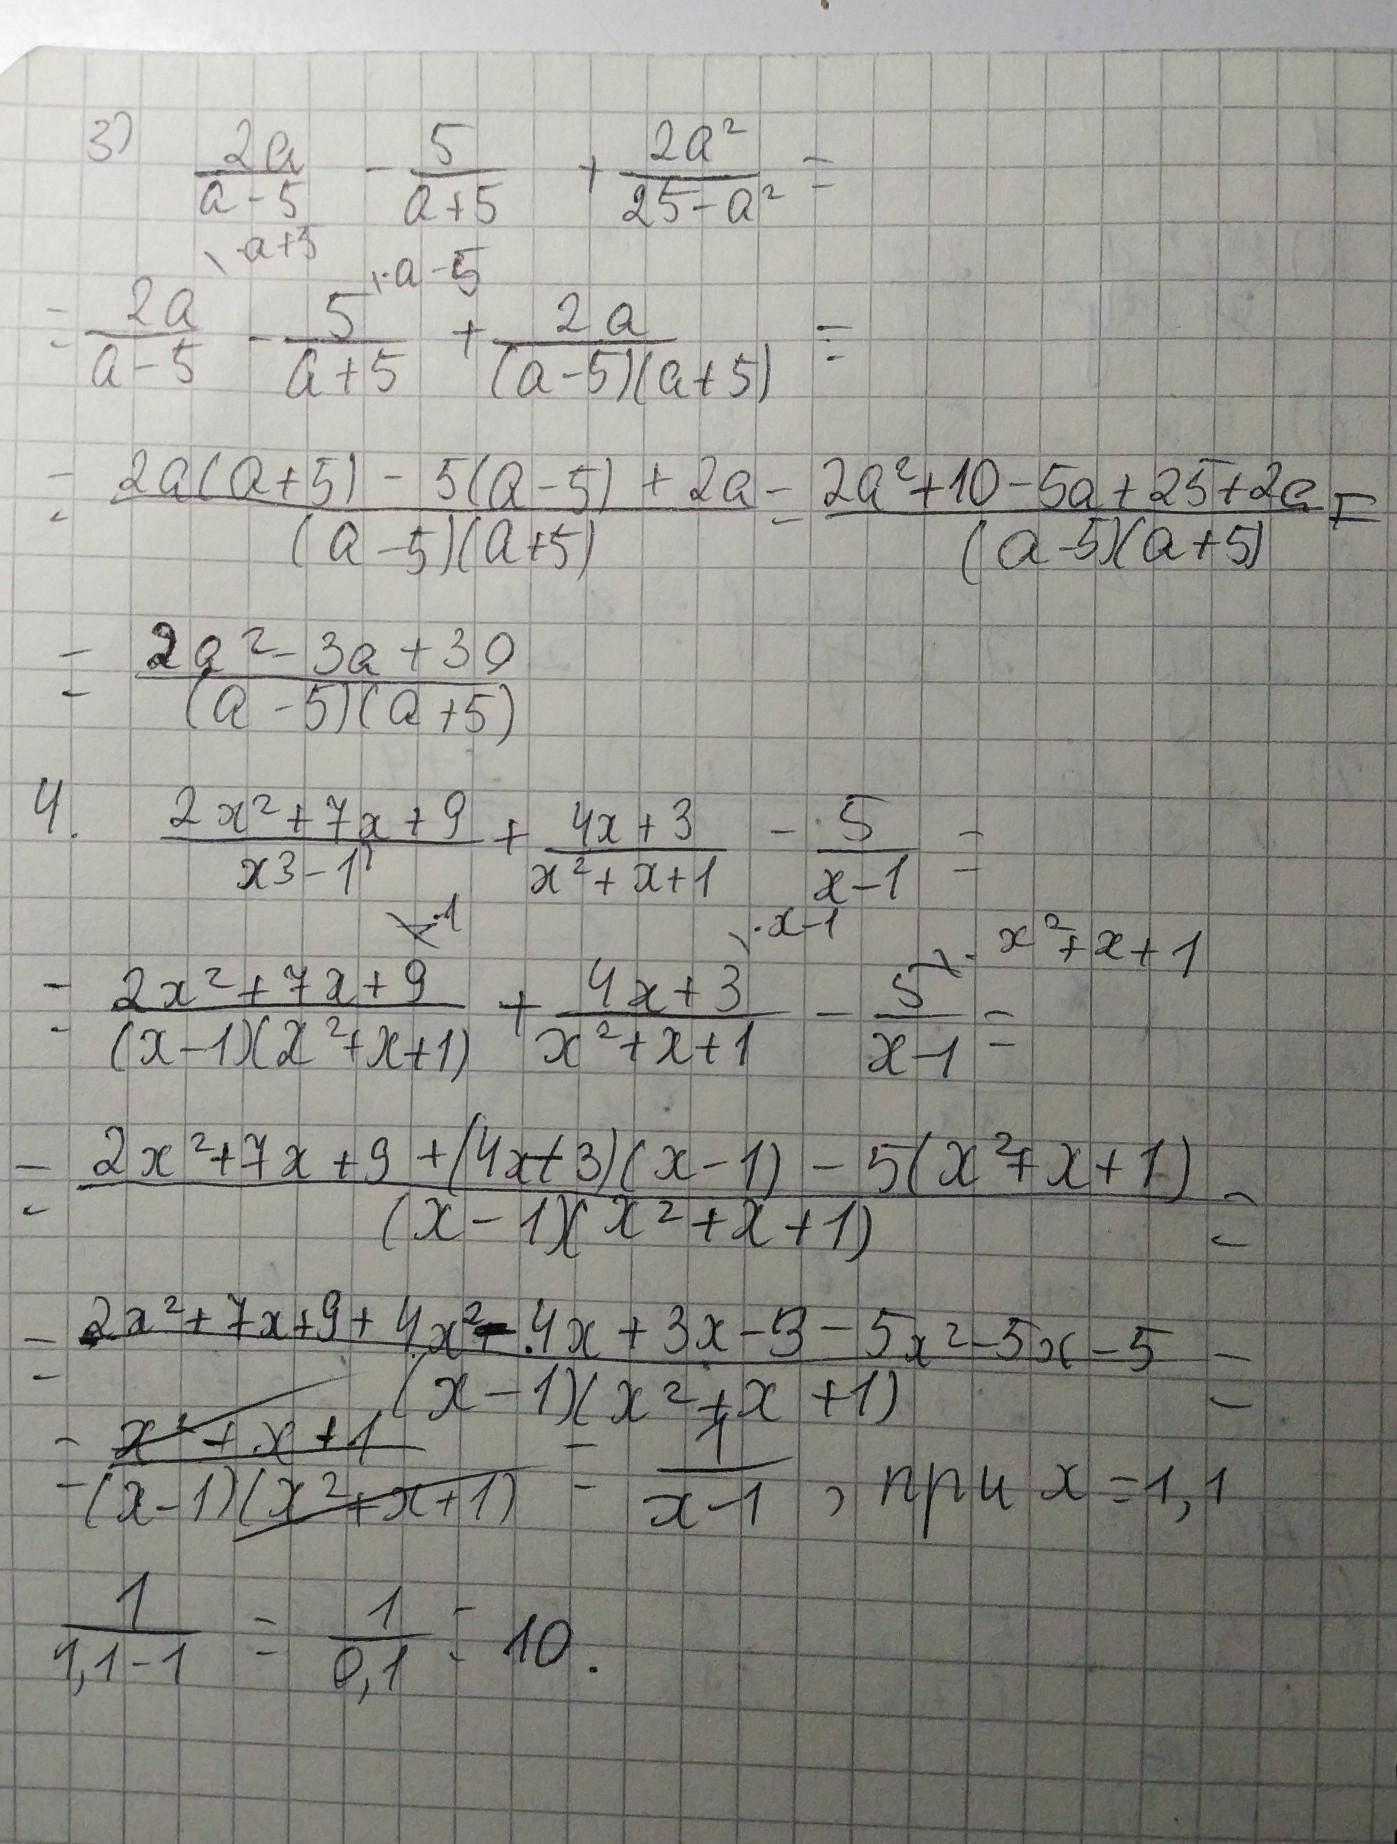 3) 2a/(a-5) - 5/(a+5) + 2a²/(25-a²) =
·a+5 ·a-5
= 2a/(a-5) - 5/(a+5) + 2a/((a-5)(a+5)) =
= (2a(a+5) - 5(a-5) + 2a)/((a-5)(a+5)) = (2a²+10-5a+25+2a)/((a-5)(a+5)) =
= (2a²-3a+30)/((a-5)(a+5))
4. (2x²+7x+9)/(x3-1) + (4x+3)/(x²+x+1) - 5/(x-1) =
·1 ·x-1 ·x²+x+1
= (2x²+7x+9)/((x-1)(x²+x+1)) + (4x+3)/(x²+x+1) - 5/(x-1) =
= (2x²+7x+9+(4x+3)(x-1)-5(x²+x+1))/((x-1)(x²+x+1)) =
= (2x²+7x+9+4x²-4x+3x-3-5x²-5x-5)/((x-1)(x²+x+1)) =
= (x²+x+1)/((x-1)(x²+x+1)) = 1/(x-1), при x=1,1
1/(1,1-1) = 1/(0,1) = 10.